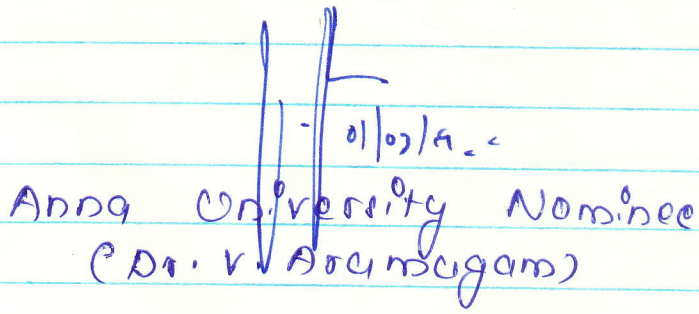 Anna University Nominee
(Dr. V. Arumugam)